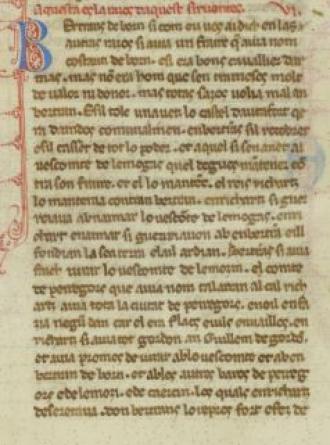 Aquesta es la razos daquest siruentes. VI.
Bertrans de born si com eu uos ai dich en las au
tras razos si auia un fraire qe auia nom
costanti de born. et era bons caualliers dar
mas. mas no era hom que sen trameses molt
de ualor ni donor. mas totas sazos uolia mal an
bertran. E sil tolc una uez lo castel dautafort qe
ra damdos comunalmen. enbertrans sil recobret
et casset de tot lo poder. et aquel si sen anet al
uescomte de lemogas quel degues mantener con
tra son fraire. et el lo mantenc. el reis richartz
lo mantenia contran bertran. enrichartz si guer
reiaua ab naimar lo uescomte de lemogas. enri
chart enaimar si guerreiauon ab enbertran eill
fondian la sea terra el ail ardian. Bertrans si auia
faich iurar lo uescomte de lemogas. el comte
de peiregorc que auia nom talairan al cal rich
artz auia tota la ciutat de peiregorc. e non en fa
ria negun dan car el era flacs e uils e nuaillos. en
richartz si auia tot gordon an Guillem de gordon.
et auia promes de iurar ab lo uescomte et ab en
bertran de born. et ab los autres baros de peireg
orc e de lemozi. e de caerci. los quals enrichartz
deseretaua. don bertrans lo repres fort. e fetz de